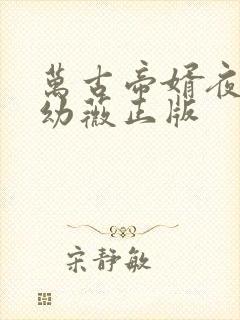 萬古帝婿夜
幼薇正版
宋靜敏